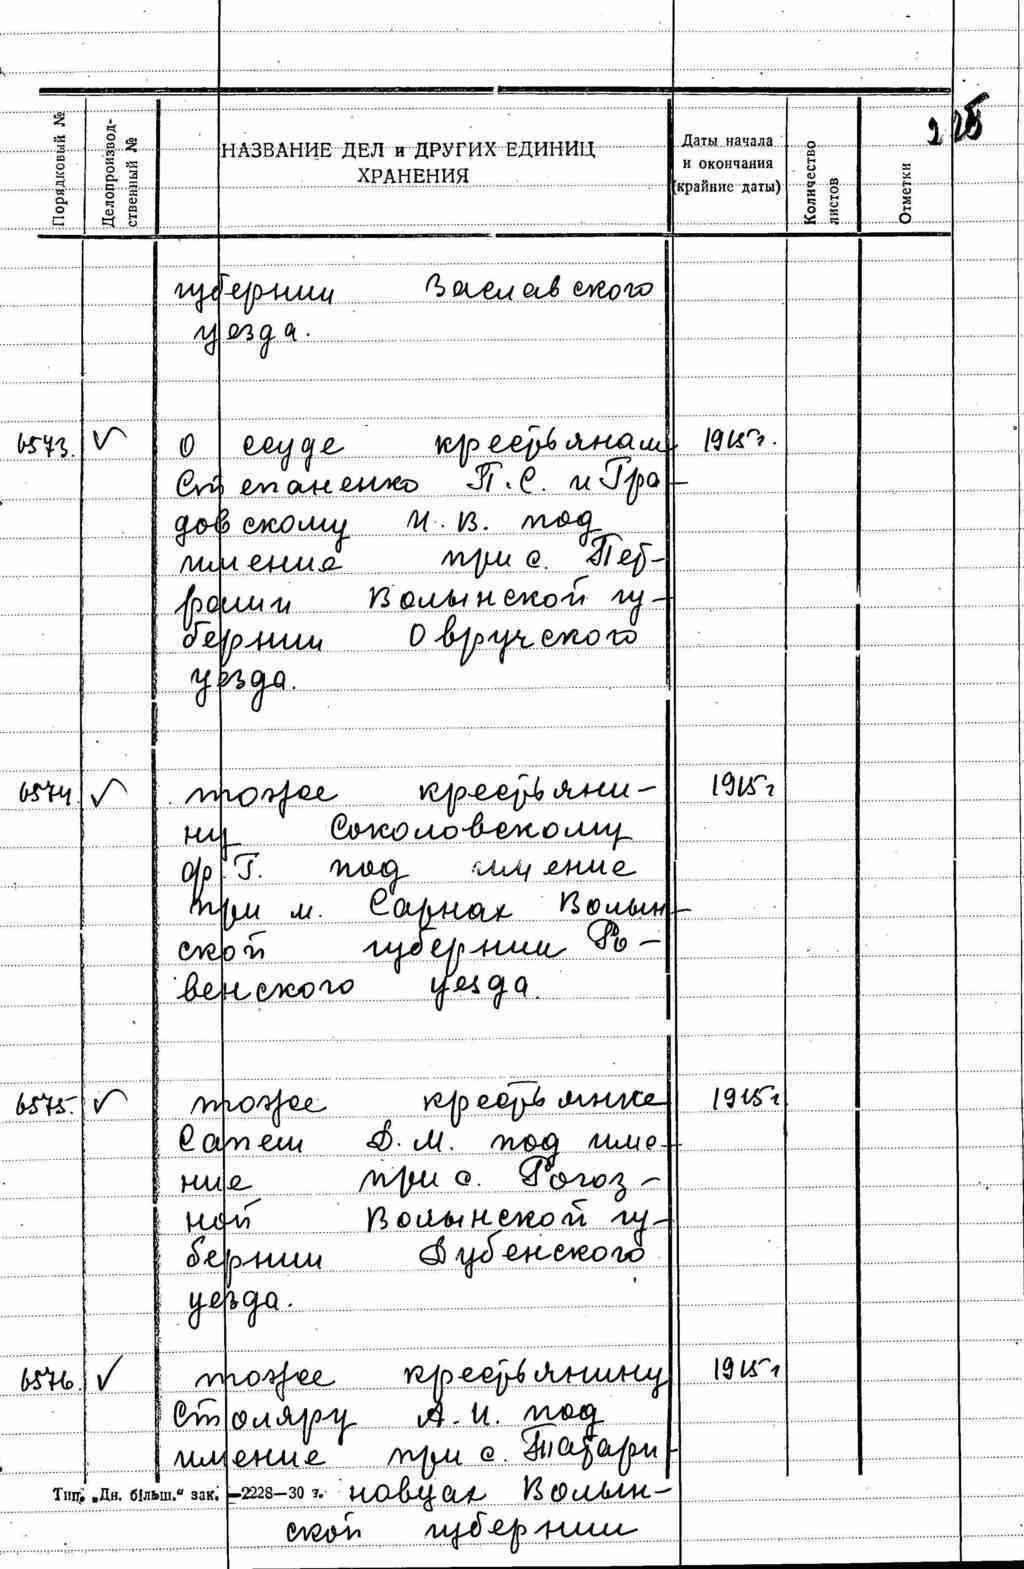 225
Порядковый №
Делопроизвод-
ственный №
НАЗВАНИЕ ДЕЛ и ДРУГИХ ЕДИНИЦ
ХРАНЕНИЯ
Даты начала
и окончания
(крайние даты)
Количество
листов
Отметки
губернии Заславского
уезда.
6573. √ О ссуде крестьянам 1915г.
Степаненко П.С. и Гра-
довскому И.В. под
имение при с. Пет-
рали Волынской гу-
бернии Овручского
уезда.
6574 √ тоже крестьяни- 1915г
ну Соколовскому
Ф.Г. под имение
при м. Сарнах Волын-
ской губернии Ро-
венского уезда.
6575. √ тоже крестьянке 1915г
Сапеш Д.М. под име-
ние при с. Рогоз-
ной Волынской гу-
бернии Дубенского
уезда.
6576. √ тоже крестьянину 1915г
Столяру А.И. под
имение при с. Татари-
новцах Волын-
ской губернии
Тип. „Дн. більш.“ зак. —2228—30 г.